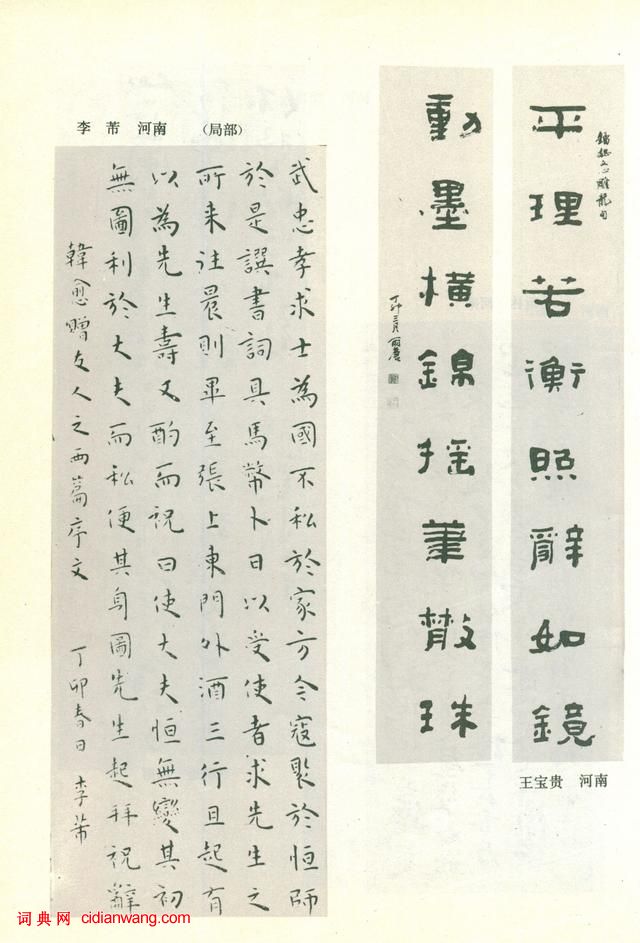 平理若衡照辭如鏡
文心雕龍句
動墨橫錦搖筆散珠
丁卯三月
王宝贵 河南
李 芾 河南 （局部）
武忠孝求士為國不私於家方今寇聚於恒師
於是譔書詞具馬幣卜日以受使者求先生之
所來往晨則畢至張上東門外酒三行且起有
以為先生壽又酌而祝曰使大夫恒無變其初
無圖利於大夫而私便其身圖先生起拜祝辭
韓愈贈友人之西篇序文 丁卯春日 李芾
词典网 cidianwang.com